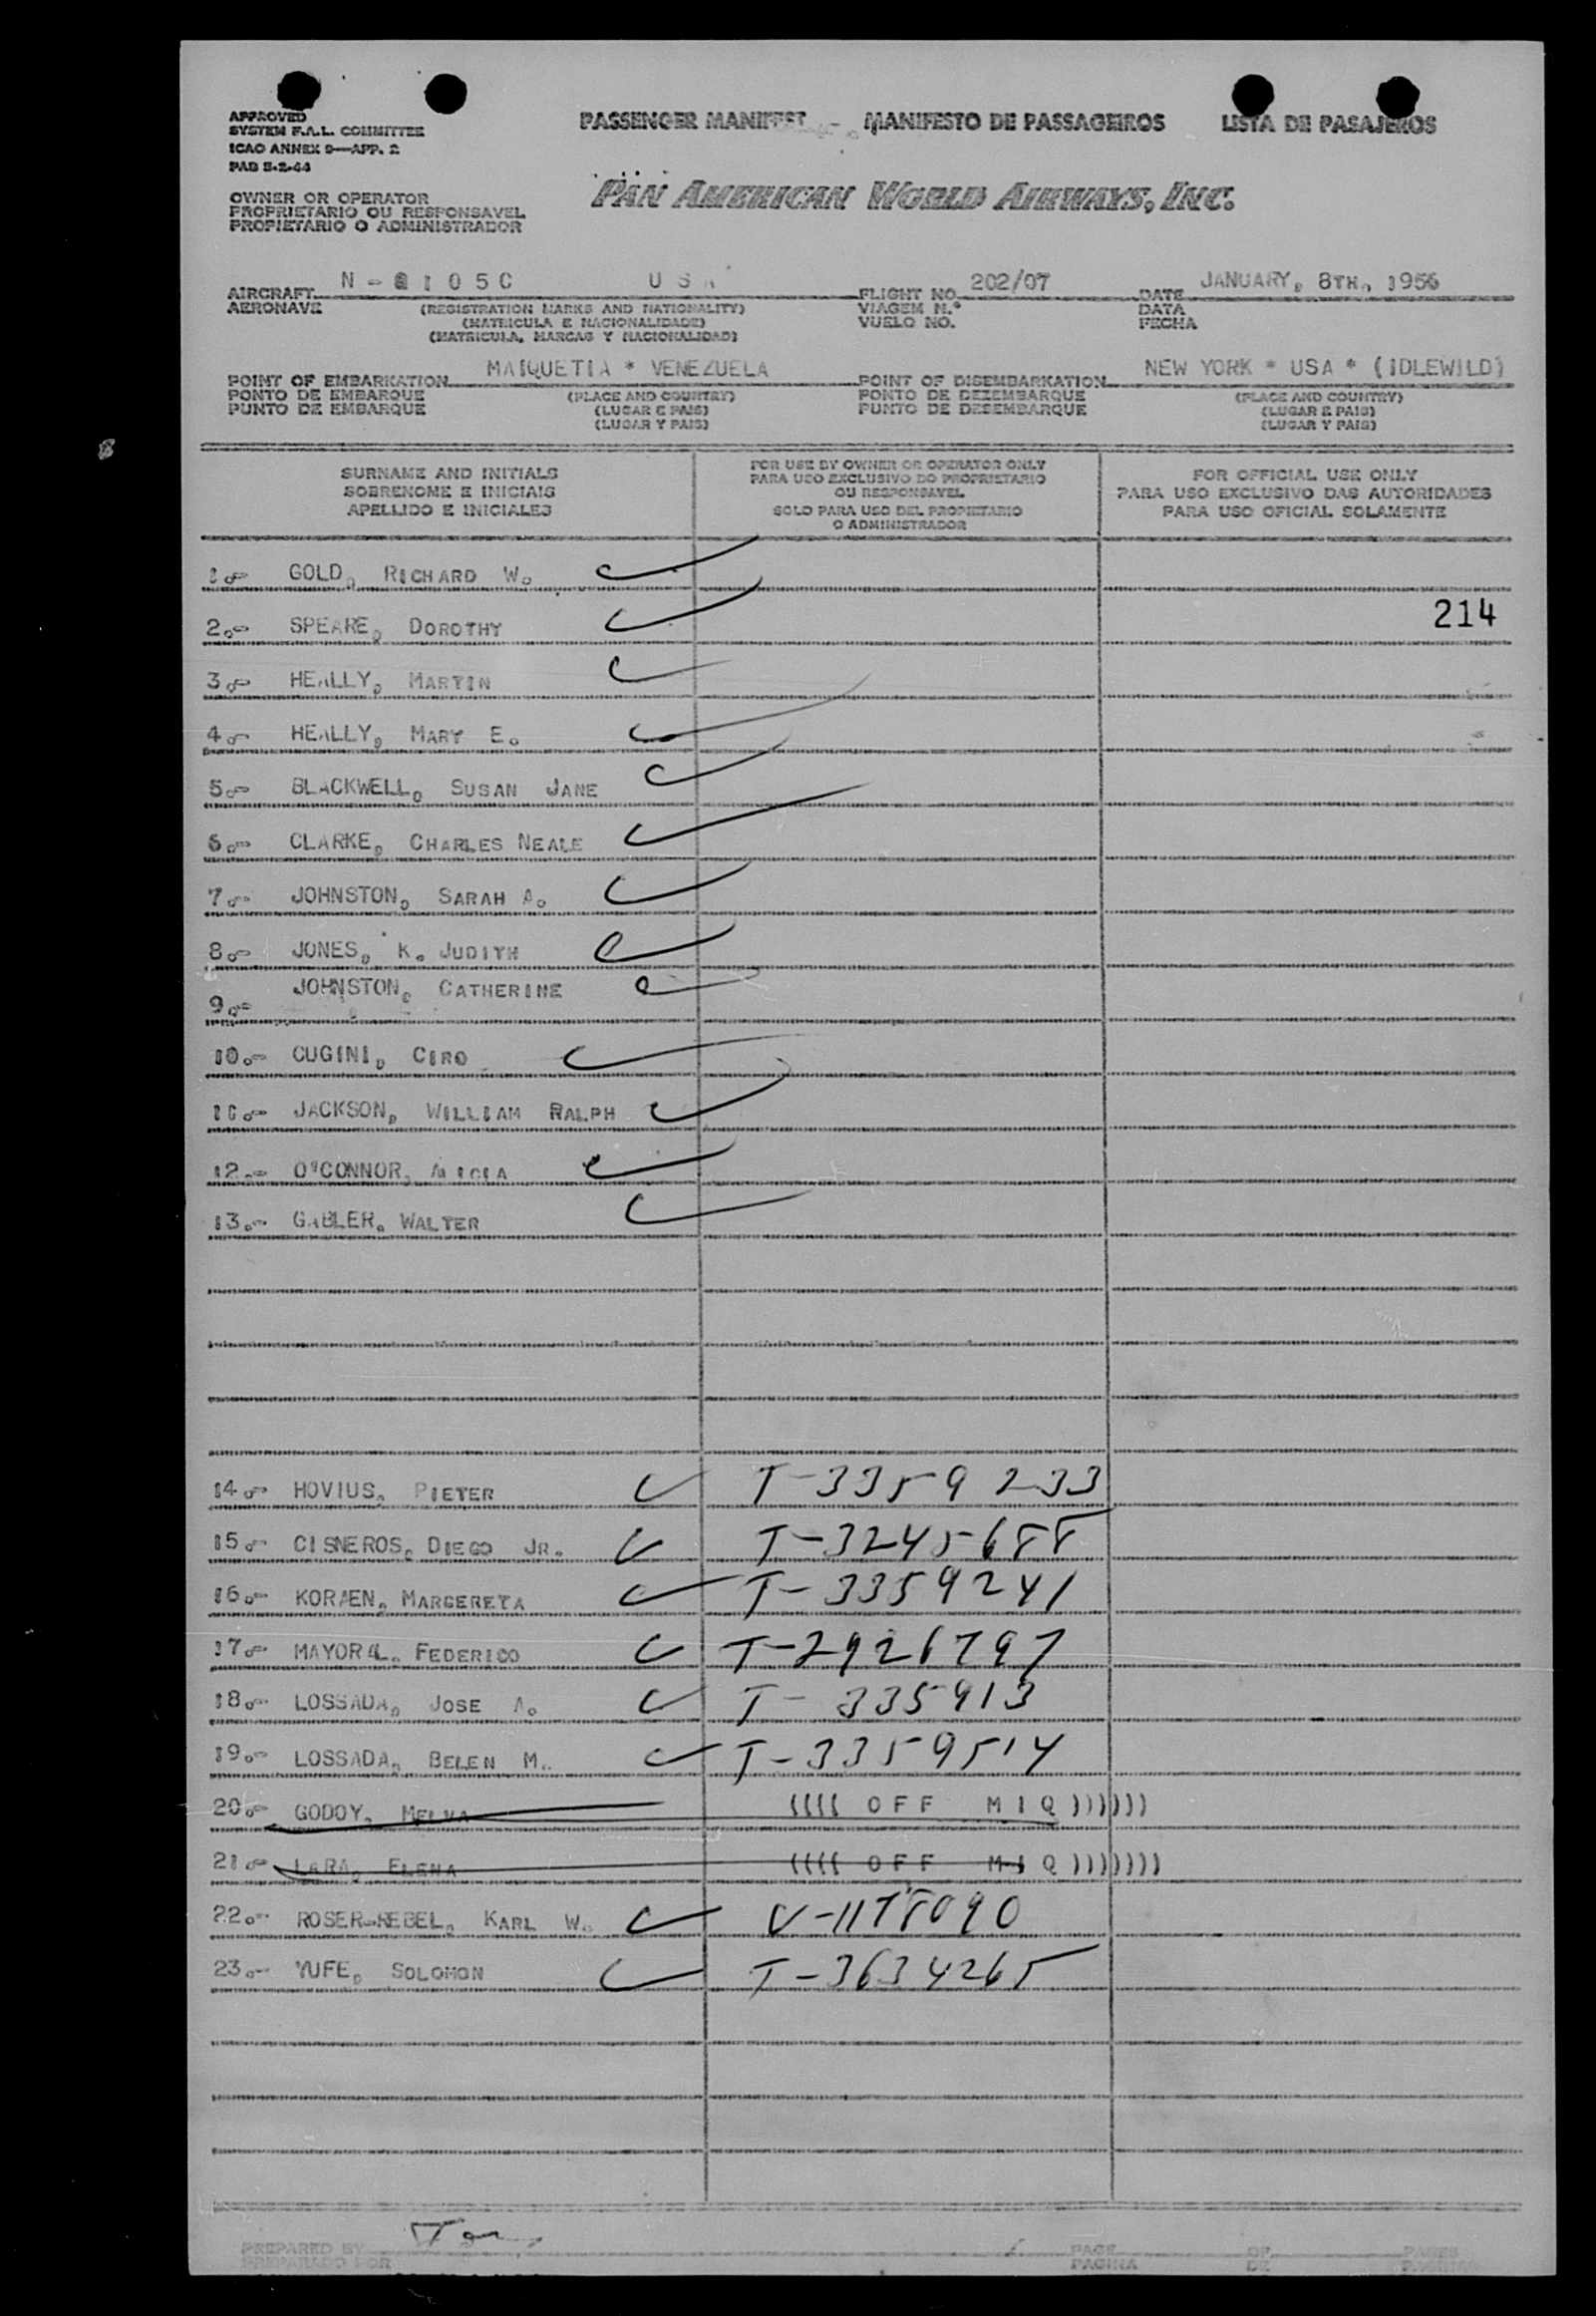 APPROVED
SYSTEM F.A.L. COMMITTEE
ICAO ANNEX 9—APP. 2
PAB 5-2-44
PASSENGER MANIFEST - MANIFESTO DE PASSAGEIROS LISTA DE PASAJEROS
PAN AMERICAN WORLD AIRWAYS, INC.
OWNER OR OPERATOR
PROPRIETARIO OU RESPONSAVEL
PROPIETARIO O ADMINISTRADOR
AIRCRAFT N - 8 1 0 5 C U S A FLIGHT NO. 202/07 DATE JANUARY, 8TH, 1956
AERONAVE (REGISTRATION MARKS AND NATIONALITY) VIAGEM N.º DATA
(MATRICULA E NACIONALIDADE) VUELO NO. FECHA
(MATRICULA, MARCAS Y NACIONALIDAD)
POINT OF EMBARKATION MAIQUETIA * VENEZUELA POINT OF DISEMBARKATION NEW YORK * USA * (IDLEWILD)
PONTO DE EMBARQUE (PLACE AND COUNTRY) PONTO DE DEZEMBARQUE (PLACE AND COUNTRY)
PUNTO DE EMBARQUE (LUGAR E PAIS) PUNTO DE DESEMBARQUE (LUGAR E PAIS)
(LUGAR Y PAIS) (LUGAR Y PAIS)
SURNAME AND INITIALS
SOBRENOME E INICIAIS
APELLIDO E INICIALES
FOR USE BY OWNER OR OPERATOR ONLY
PARA USO EXCLUSIVO DO PROPRIETARIO
OU RESPONSAVEL
SOLO PARA USO DEL PROPIETARIO
O ADMINISTRADOR
FOR OFFICIAL USE ONLY
PARA USO EXCLUSIVO DAS AUTORIDADES
PARA USO OFICIAL SOLAMENTE
1.- GOLD, RICHARD W.
214
2.- SPEARE, DOROTHY
3.- HEALLY, MARTIN
4.- HEALLY, MARY E.
5.- BLACKWELL, SUSAN JANE
6.- CLARKE, CHARLES NEALE
7.- JOHNSTON, SARAH A.
8.- JONES, K. JUDITH
9.- JOHNSTON, CATHERINE
10.- CUGINI, CIRO
11.- JACKSON, WILLIAM RALPH
12.- O'CONNOR, ALICIA
13.- GABLER, WALTER
14.- HOVIUS, PIETER T-3359233
15.- CISNEROS, DIEGO JR. T-3245688
16.- KORAEN, MARGERETA T-3359241
17.- MAYORAL, FEDERICO T-2926797
18.- LOSSADA, JOSE A. T-335913
19.- LOSSADA, BELEN M. T-3359514
20.- GODOY, MELVA (((( O F F M I Q ))))))
21.- LARA, ELENA (((( O F F M I Q )))))))
22.- ROSER-REBEL, KARL W. V-1178090
23.- YUFE, SOLOMON T-3634265
PREPARED BY PAGE OF PAGES
PREPARADO POR PAGINA DE